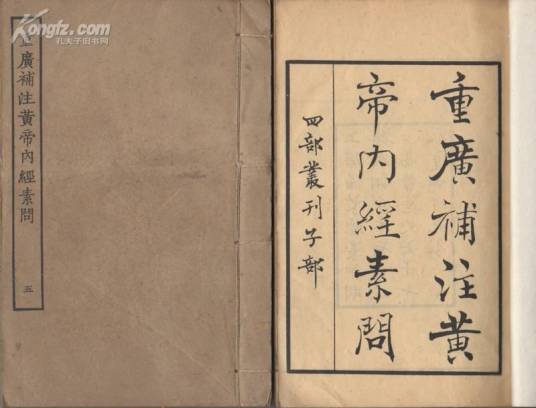 Kongfz.com
孔夫子旧书网
重廣補注黃帝內經素問
五
重廣補注黃
帝內經素問
四部叢刊子部